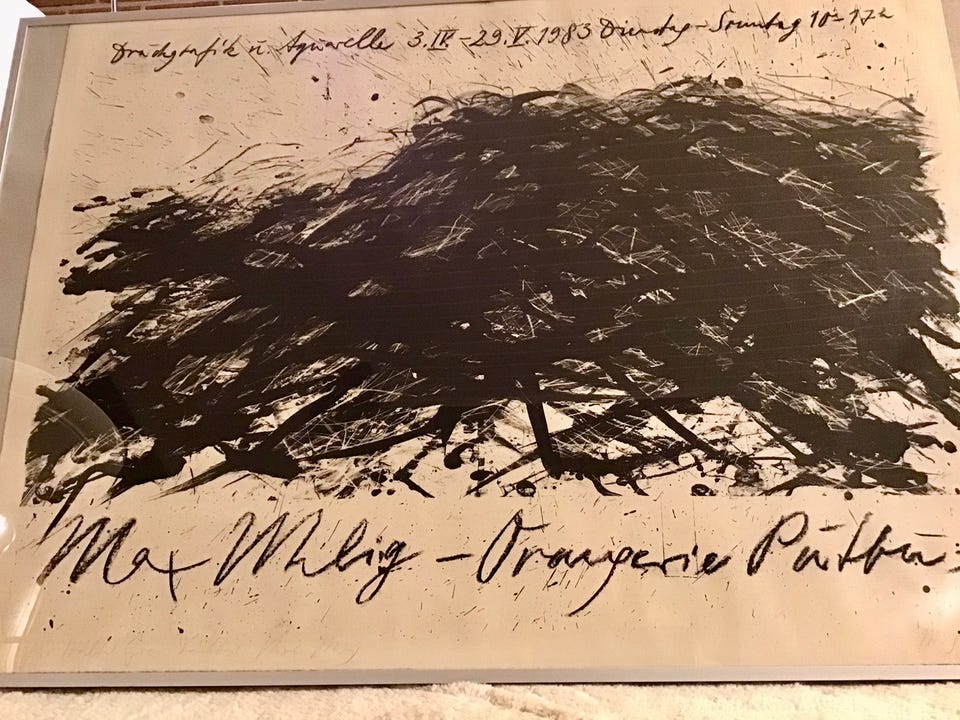 Druckgrafik u. Aquarelle 3.IV-29.V.1983 Dienstag-Sonntag 10h-17h
Max Uhlig - Orangerie Putbu